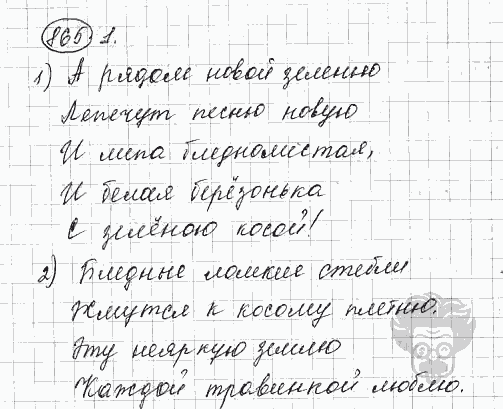 865 1.
1) А рядом новой зеленью
Лепечут песню новую
И липа бледнолистая,
И белая берёзонька
С зелёною косой!
2) Бледные ломкие стебли
Жмутся к косому плетню.
Эту неяркую землю
Каждой травинкой люблю.